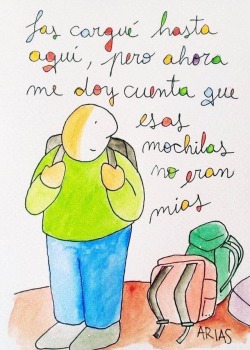 Las cargué hasta
aquí, pero ahora
me doy cuenta que
esas
mochilas
no eran
mias
ARIAS